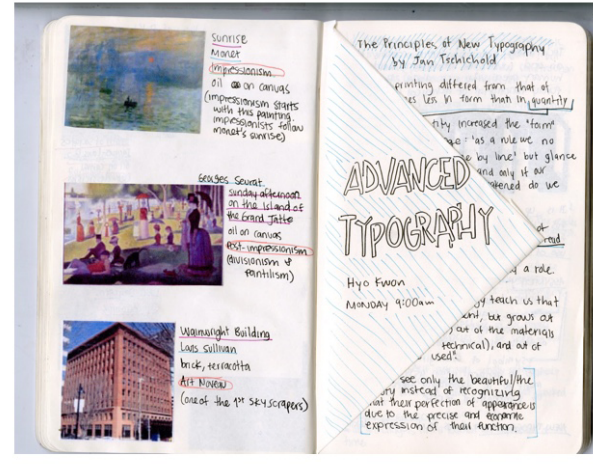 sunrise
Monet
Impressionism
oil on canvas
(impressionism starts
with this painting.
impressionists follow
monet's sunrise)
Georges Seurat.
sunday afternoon
on the Island of
the Grand Jatte
oil on canvas
Post-impressionism
(divisionism &
Wainwright Building
Louis Sullivan
brick, terracotta
Art Noveau
(one of the 1st skyscrapers)
The Principles of New Typography
by Jan Tschichold
printing differed from that of
less in form that in quantity
increased the "form"
"as a rule we no
by line" but glance
and only if our
do we
of
ADVANCED
TYPOGRAPHY
Hyo Kwon
MONDAY 9:00am
a role.
teach us that
but grows out
out of the materials
technical), and out of
used".
see only the beautiful/the
instead of recognizing
that their perfection of appearance is
due to the precise and economic
expression of their function.